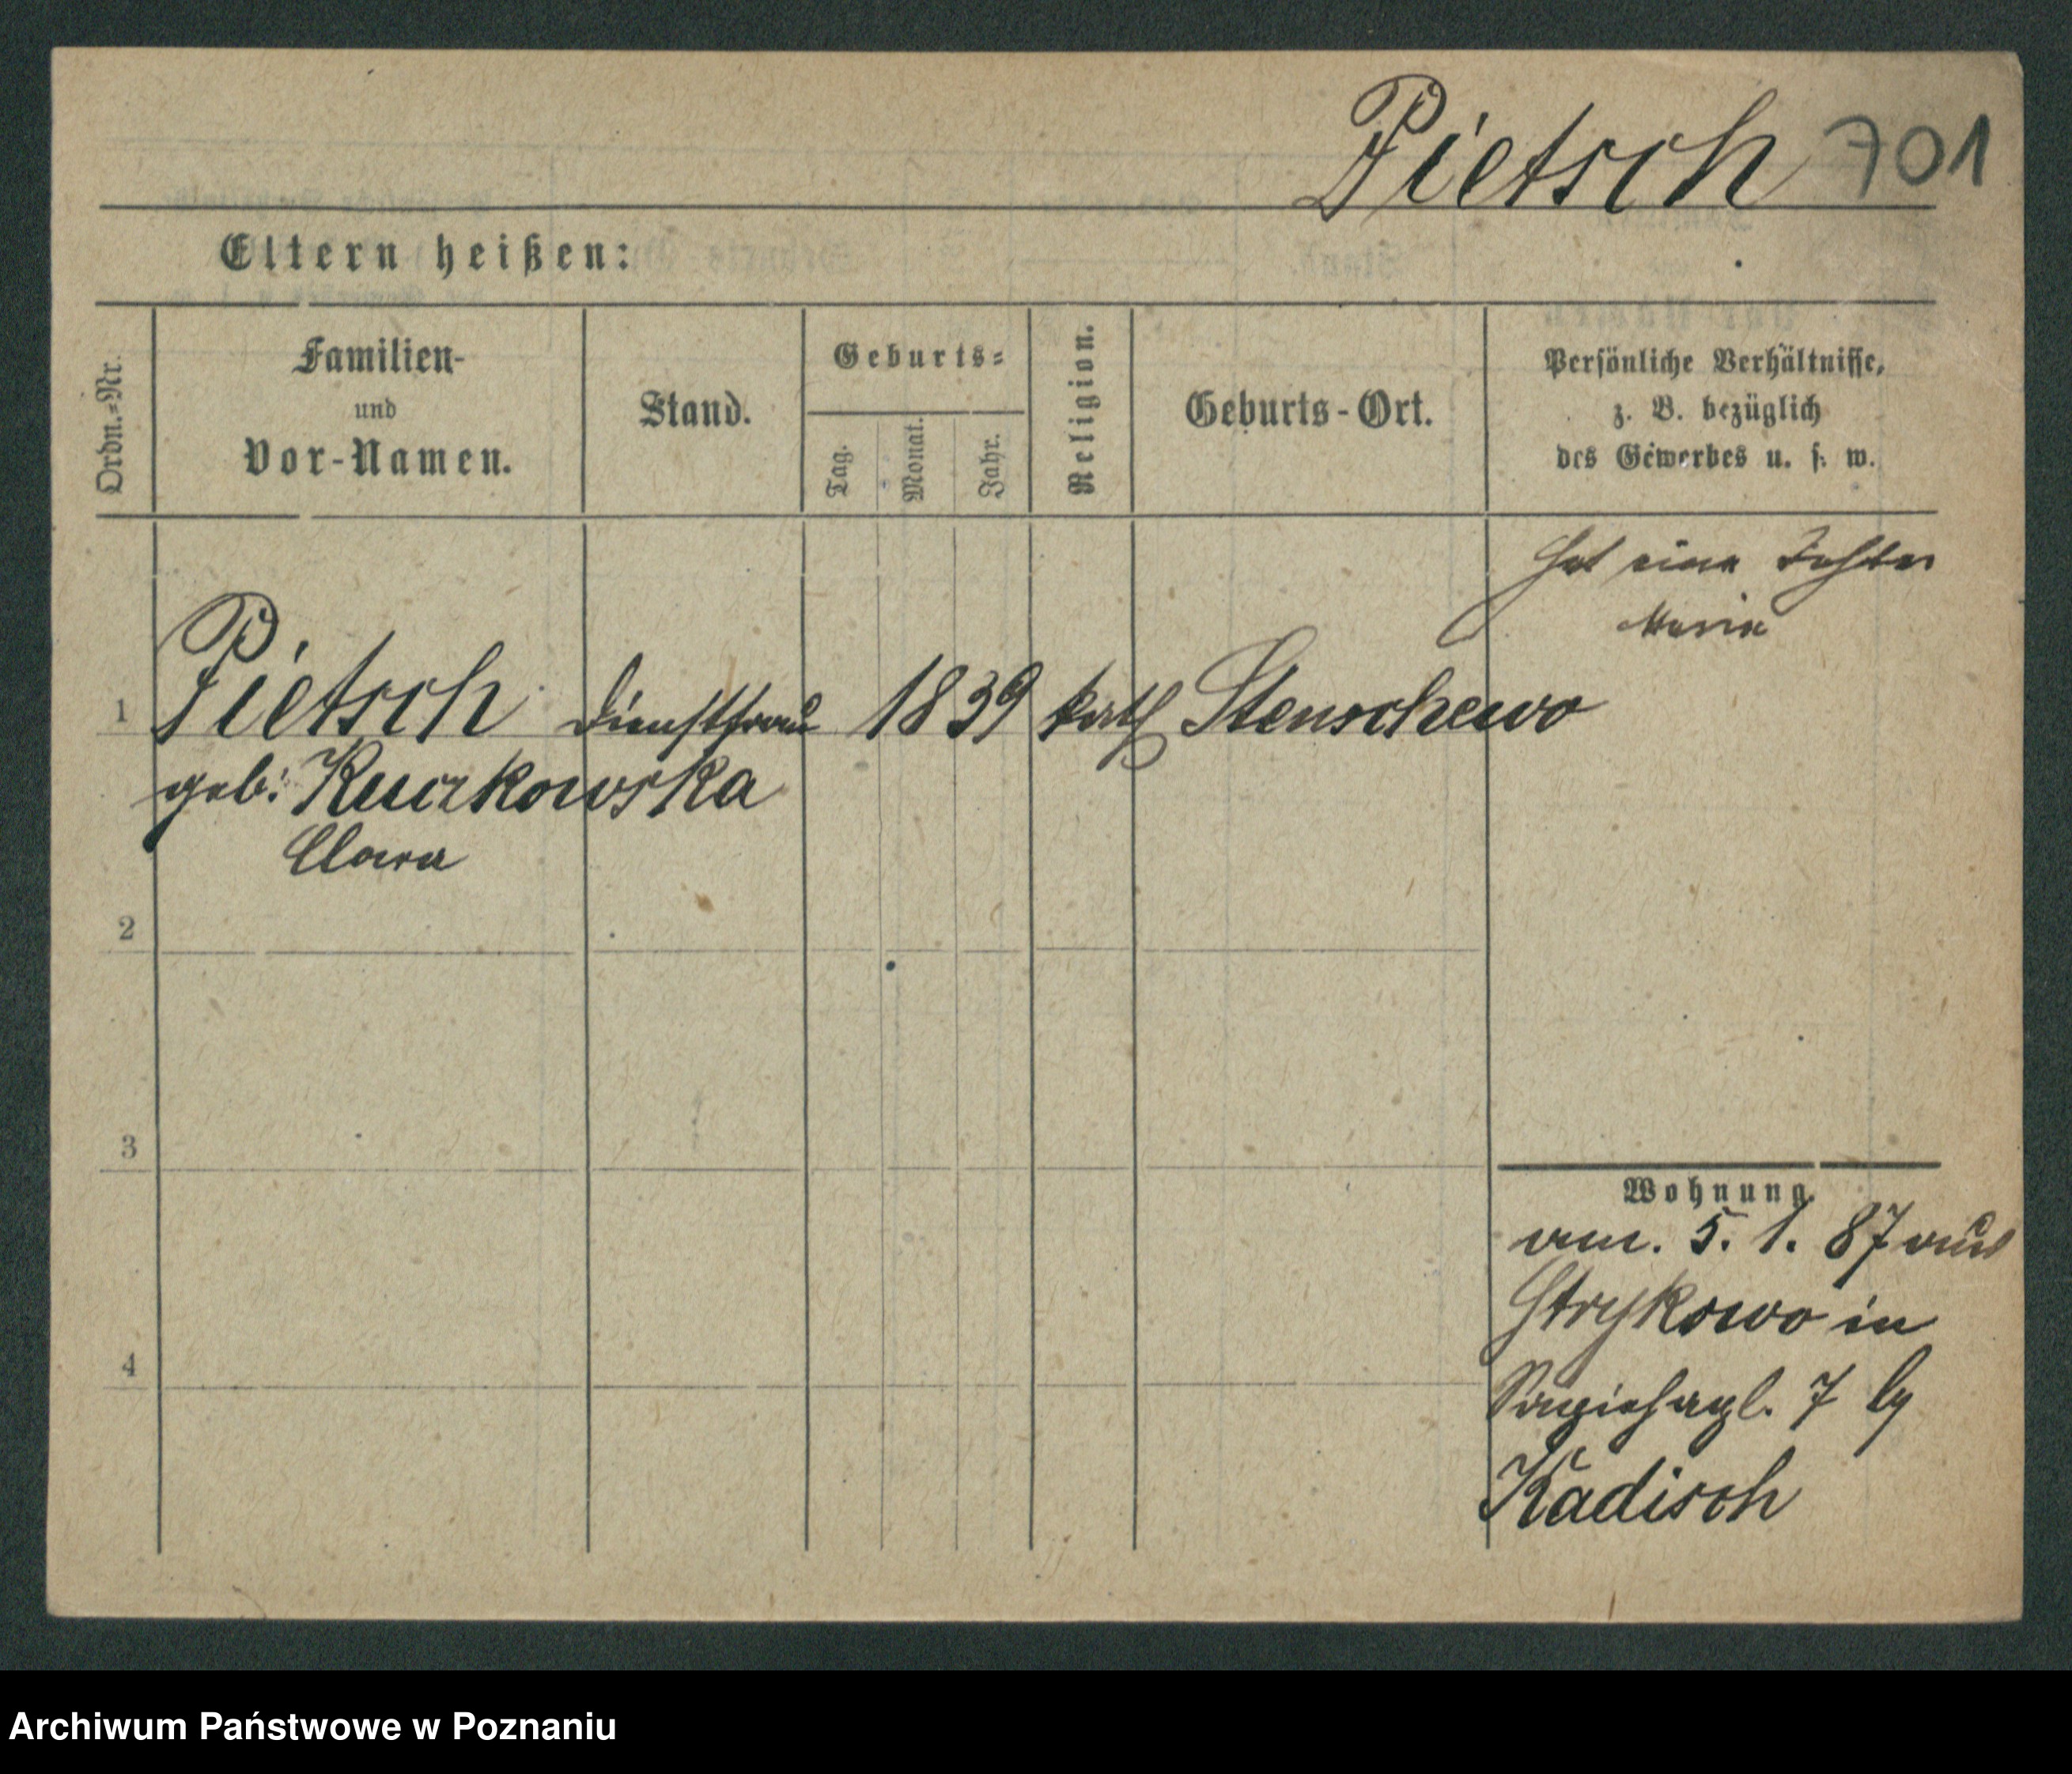 Pietsch 701
Eltern heißen:
Ordn.=Nr.
Familien-
und
Vor-Namen.
Stand.
Geburts=
Tag.
Monat.
Jahr.
Religion.
Geburts-Ort.
Persönliche Verhältnisse,
z. B. bezüglich
des Gewerbes u. s. w.
hat eine Tochter
Maria
1 Pietsch Dienstfrau 1839 kath Stenschewo
geb: Kuczkowska
Clara
2
3
4
Wohnung.
am. 5. 1. 87 aus
Strykowo in
7 by
Kadisch
Archiwum Państwowe w Poznaniu